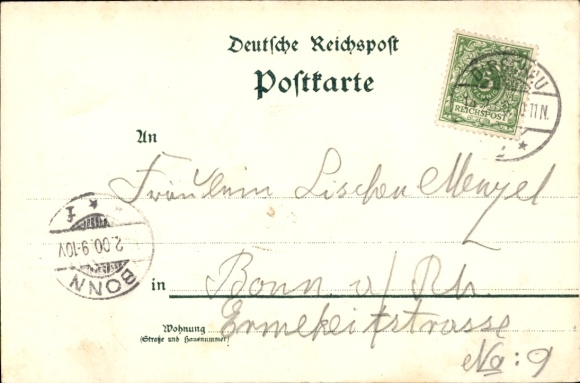 Deutsche Reichspost
Postkarte
REICHSPOST
11 N.
An
Fräulein Lischen Menzel
BONN
2.00.9-10V
f
in Bonn a/Rh
Wohnung
(Straße und Hausnummer)
Ermekeilstrasse
No: 9